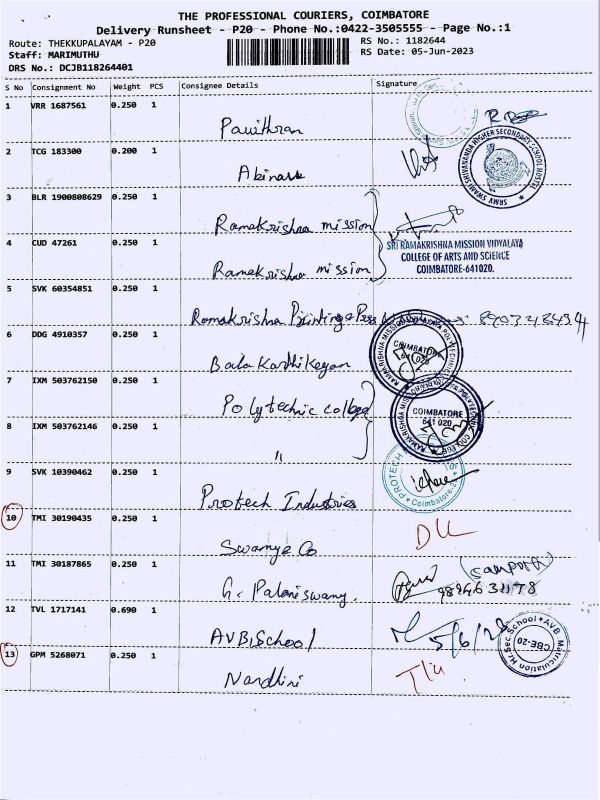 THE PROFESSIONAL COURIERS, COIMBATORE
Delivery Runsheet - P20 - Phone No.:0422-3505555 - Page No.:1
Route: THEKKUPALAYAM - P20
RS No.: 1182644
Staff: MARIMUTHU
RS Date: 05-Jun-2023
DRS No.: DCJB118264401
S No Consignment No Weight PCS Consignee Details Signature
1 VRR 1687561 0.250 1
Pavithran
2 TCG 183300 0.200 1
SRMV SWAMI SHIVANANDA HIGHER SECONDARY SCHOOL HOSTEL
3 BLR 1900808629 0.250 1
Ramakrishna mission
4 CUD 47261 0.250 1
SRI RAMAKRISHNA MISSION VIDYALAYA
COLLEGE OF ARTS AND SCIENCE
COIMBATORE-641020.
Ramakrishna mission
5 SVK 60354851 0.250 1
Ramakrishna Printing
6 DDG 4910357 0.250 1
COIMBATORE
641 020
Bala Karthikeyan
7 IXM 503762150 0.250 1
Polytechnic college
COIMBATORE
641 020
8 IXM 503762146 0.250 1
"
9 SVK 10390462 0.250 1
PROTECH
Coimbatore
Protech Industries
10 TMI 30190435 0.250 1
DLL
Swamy & Co
11 TMI 30187865 0.250 1
G. Palaniswamy.
12 TVL 1717141 0.690 1
AVB School
5/6/23
AVB Matriculation Hr Sec School
CBE-20
13 GPM 5268071 0.250 1
Nandhini